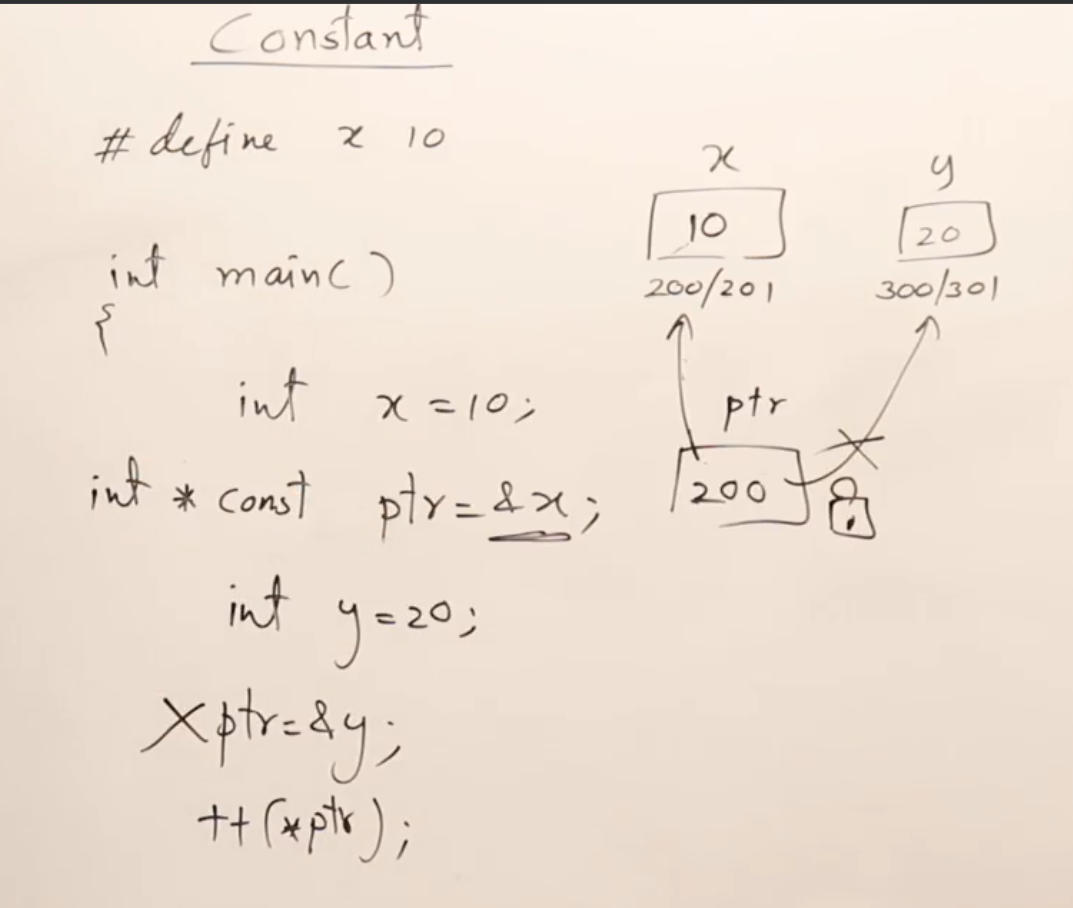 Constant
# define x 10
int main()
{
int x = 10;
int * const ptr = &x;
int y = 20;
X ptr = &y;
++(*ptr);
x
10
200/201
y
20
300/301
ptr
200